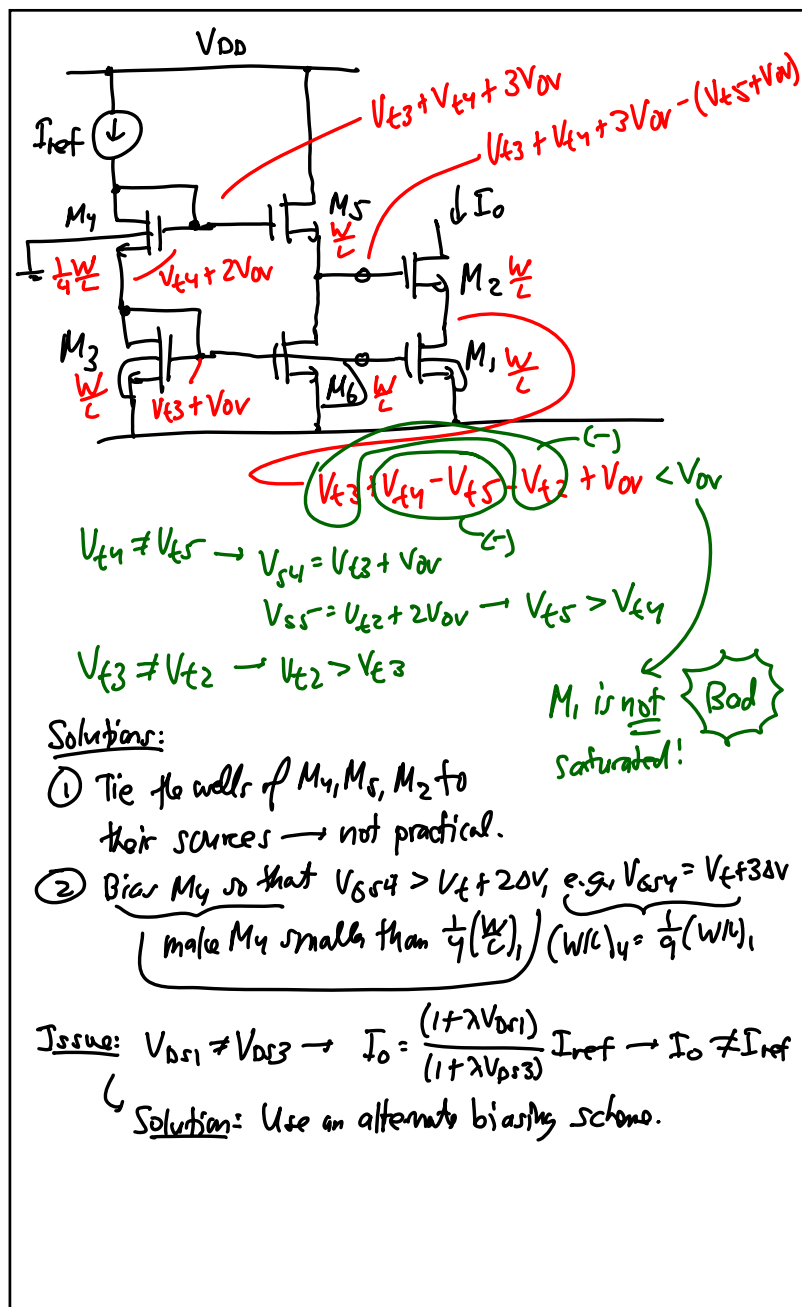 VDD
Vt3+Vt4+3Vov
Vt3+Vt4+3Vov-(Vt5+Vov)
Iref
M4
M5
W/L
↓Io
1/4 W/L
Vt4+2Vov
M2 W/L
M3
W/L
Vt3+Vov
M6
W/L
M1 W/L
(-)
Vt3+Vt4-Vt5-Vt2+Vov<Vov
(-)
Vt4≠Vt5→VS4=Vt3+Vov
VS5=Vt2+2Vov→Vt5>Vt4
Vt3≠Vt2→Vt2>Vt3
M1 is not
saturated!
Bad
Solutions:
① Tie the wells of M4, M5, M2 to
their sources → not practical.
② Bias M4 so that VGS4 > Vt+2ΔV, e.g., VGS4=Vt+3ΔV
make M4 smaller than 1/4(W/L)1
(W/L)4=1/9(W/L)1
Issue: VDS1≠VDS3→ Io=(1+λVDS1)/(1+λVDS3) Iref→Io≠Iref
Solution: Use an alternate biasing scheme.